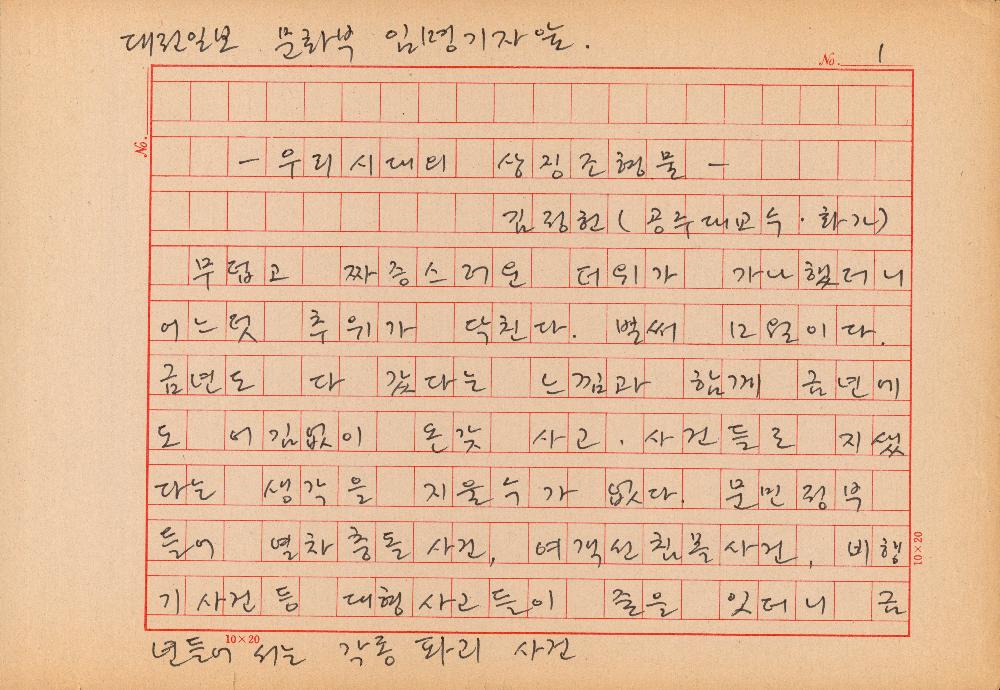 대전일보 문화부 임명기자앞.
No. 1
No.
- 우리시대의 상징조형물 -
김정헌 (공주대교수·화가)
무덥고 짜증스러운 더위가 가나했더니
어느덧 추위가 닥친다. 벌써 12월이다.
금년도 다 갔다는 느낌과 함께 금년에
도 어김없이 온갖 사고·사건들로 지샜
다는 생각을 지울수가 없다. 문민정부
들어 열차충돌사건, 여객선침몰사건, 비행
기사건등 대형사고들이 줄을 잇더니 금
년들어서는 각종 파리 사건
10×20
10×20